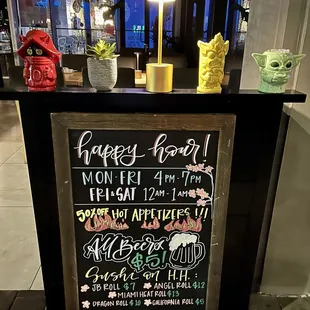 happy hour!
MON-FRI 4PM-7PM
FRI&SAT 12AM-1AM
50% OFF HOT APPETIZERS!!!
All Beers
$5!
Sushi on H.H.:
JB ROLL $7 ANGEL ROLL $12
MIAMI HEAT ROLL $13
DRAGON ROLL $10 CALIFORNIA ROLL $5